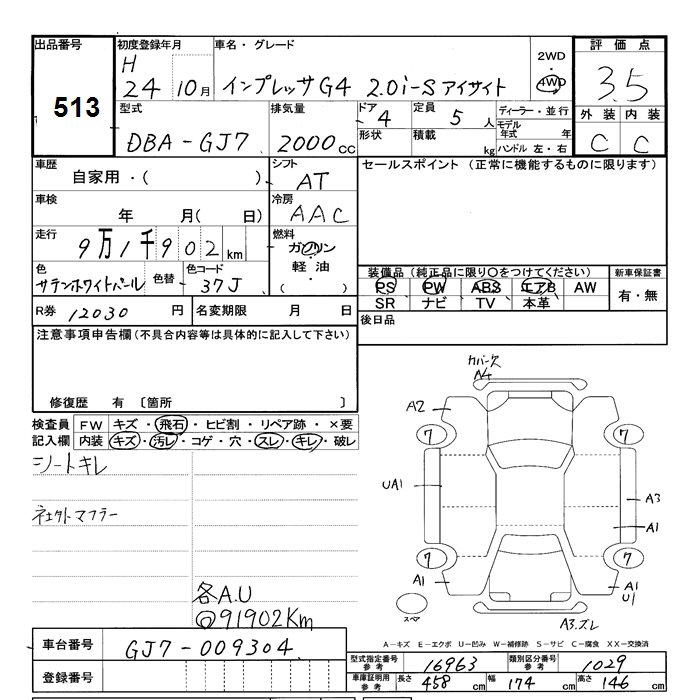 出品番号 初度登録年月 車名・グレード 評価点
513
H 24 10月 インプレッサG4 2.0i-S アイサイト 2WD 4WD 3.5
型式 排気量 ドア 定員 ディーラー・並行 外装 内装
DBA-GJ7 2000cc 4 5人 モデル年式 年 C C
形状 積載 kg ハンドル 左・右
車歴 シフト セールスポイント (正常に機能するものに限ります)
自家用・( ) AT
車検 冷房
年 月( 日) AAC
走行 燃料
9万1千902km ガソリン
軽油
( )
色 色替 色コード 装備品(純正品に限り○をつけてください) 新車保証書
サテンホワイトパール 37J PS PW ABS エアB AW 有・無
SR ナビ TV 本革
R券 12030 円 名変期限 月 日 後日品
注意事項申告欄(不具合内容等は具体的に記入して下さい)
修復歴 有 〔箇所 〕
検査員 FW キズ・飛石・ヒビ割・リペア跡・×要
記入欄 内装 キズ・汚レ・コゲ・穴・スレ・キレ・破レ
シートキレ
各A.U
@91902Km
カバー欠
A4
A2
7 7
UA1 A3
A1
7 7
A1 A1
U1
スペア
A3.ズレ
A-キズ E-エクボ U-凹み W-補修跡 S-サビ C-腐食 XX-交換済
車台番号 GJ7-009304
型式指定番号 参考 16963 類別区分番号 参考 1029
登録番号
車庫証明用 参考 長さ 458 cm 幅 174 cm 高さ 146 cm